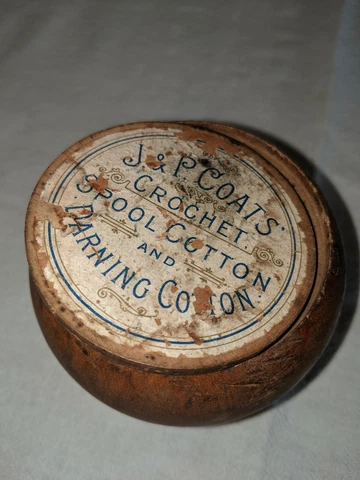 J. & P. COATS'
CROCHET.
SPOOL COTTON
AND
DARNING COTTON.